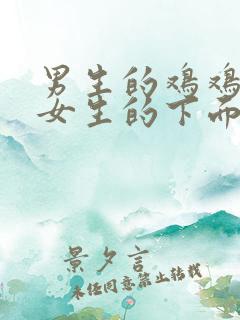 男生的鸡鸡
女生的下面
景夕言
未经同意禁止转载